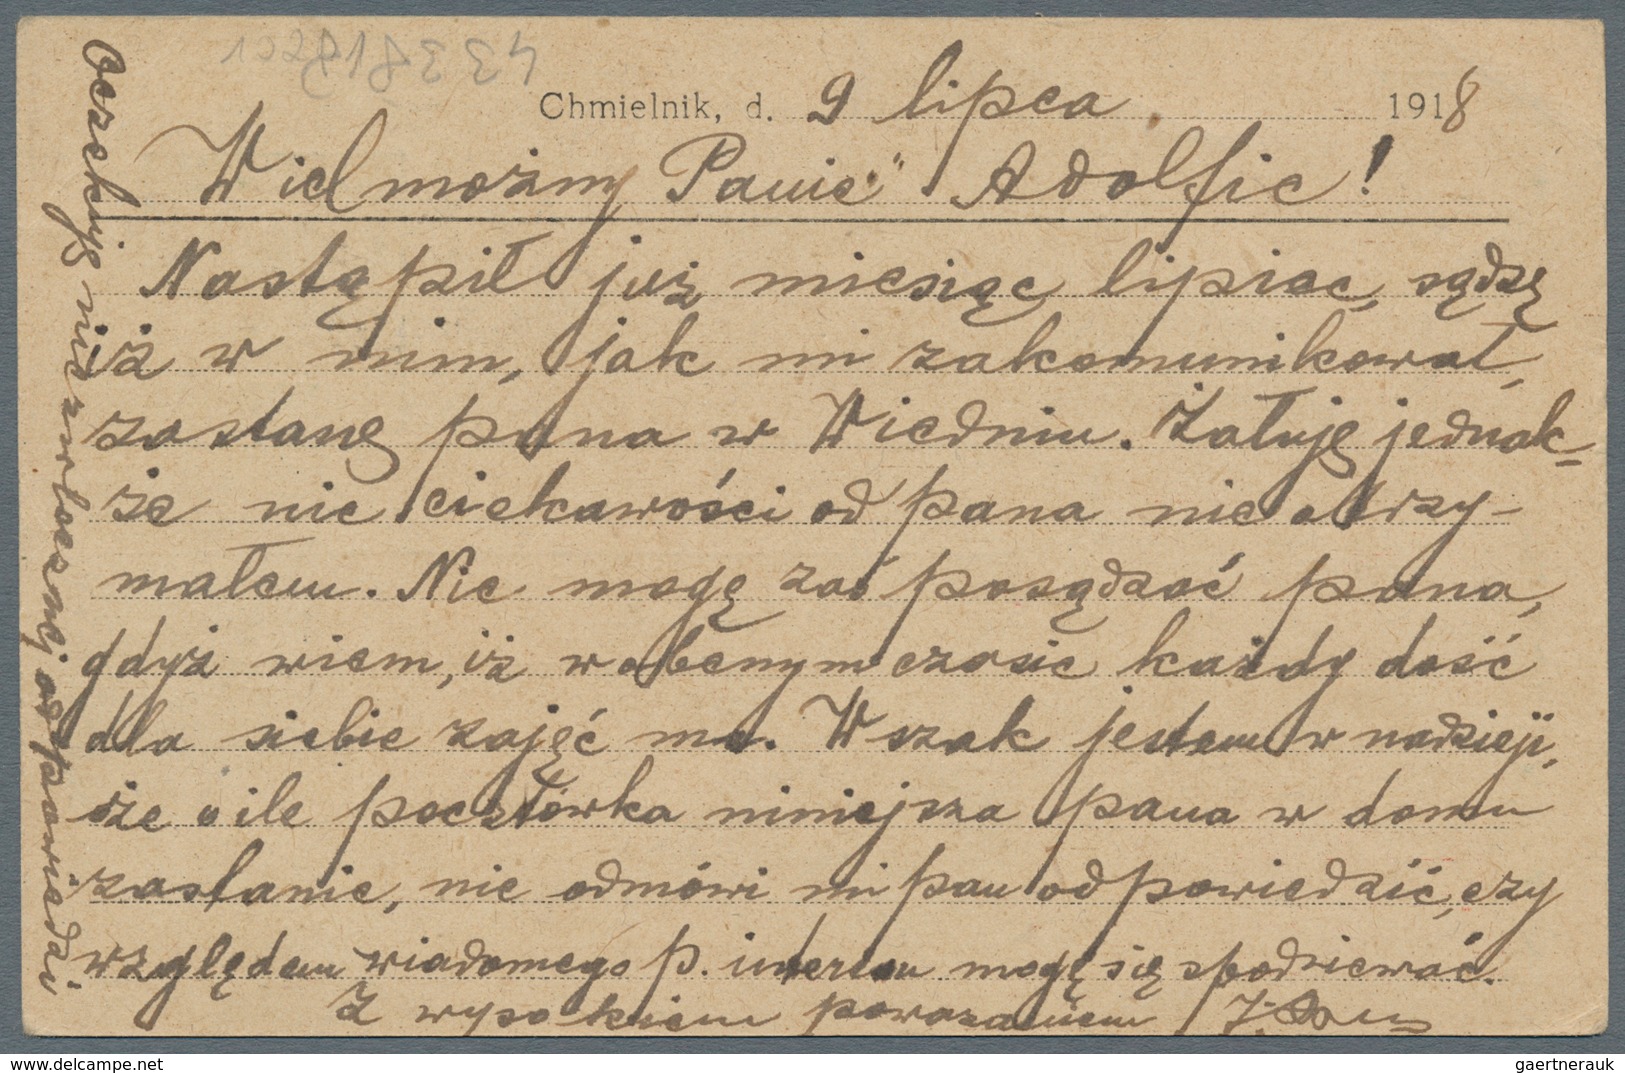 433818201
Chmielnik, d. 9 lipca 1918
Wielmożny Panie Adolfie!
Nastąpił już miesiąc lipiec, sądzę
iż w nim, jak mi zakomunikował,
zostanę pana w Wiedniu. Żałuję jednak-
że nic ciekawości od pana nie otrzy-
małem. Nie mogę zaś posądzać pana,
gdyż wiem, iż w obecnym czasie każdy dość
dla siebie zajęć ma. Wszak jestem w nadzieji,
że o ile pocztówka niniejsza pana w domu
zastanie, nie odmówi mi pan odpowiedzić, czy
względem wiadomego p. interesu mogę się spodziewać.
Z wysokiem poważaniem
Oczekuję niezwłocznej odpowiedzi
delcampe.net
gaertnerauk